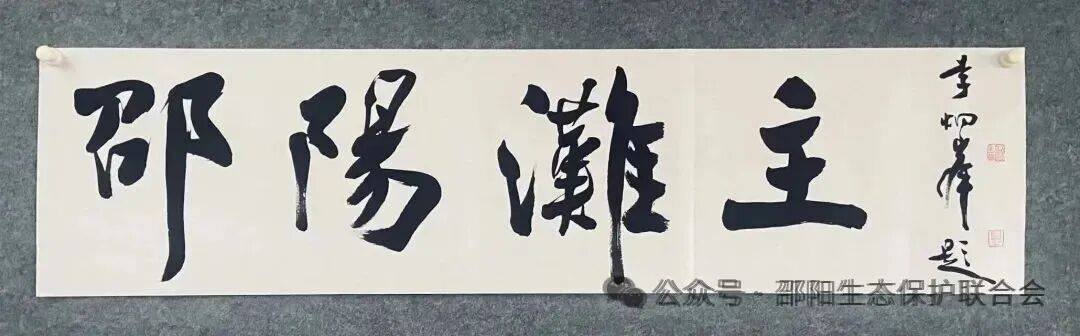 邵陽灘主
李炳峰題
公众号·邵阳生态保护联合会